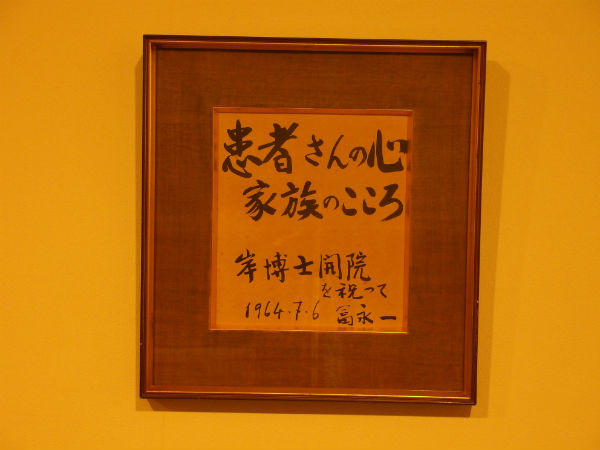 患者さんの心
家族のこころ
岸博士開院
を祝って
1964.7.6 冨永一